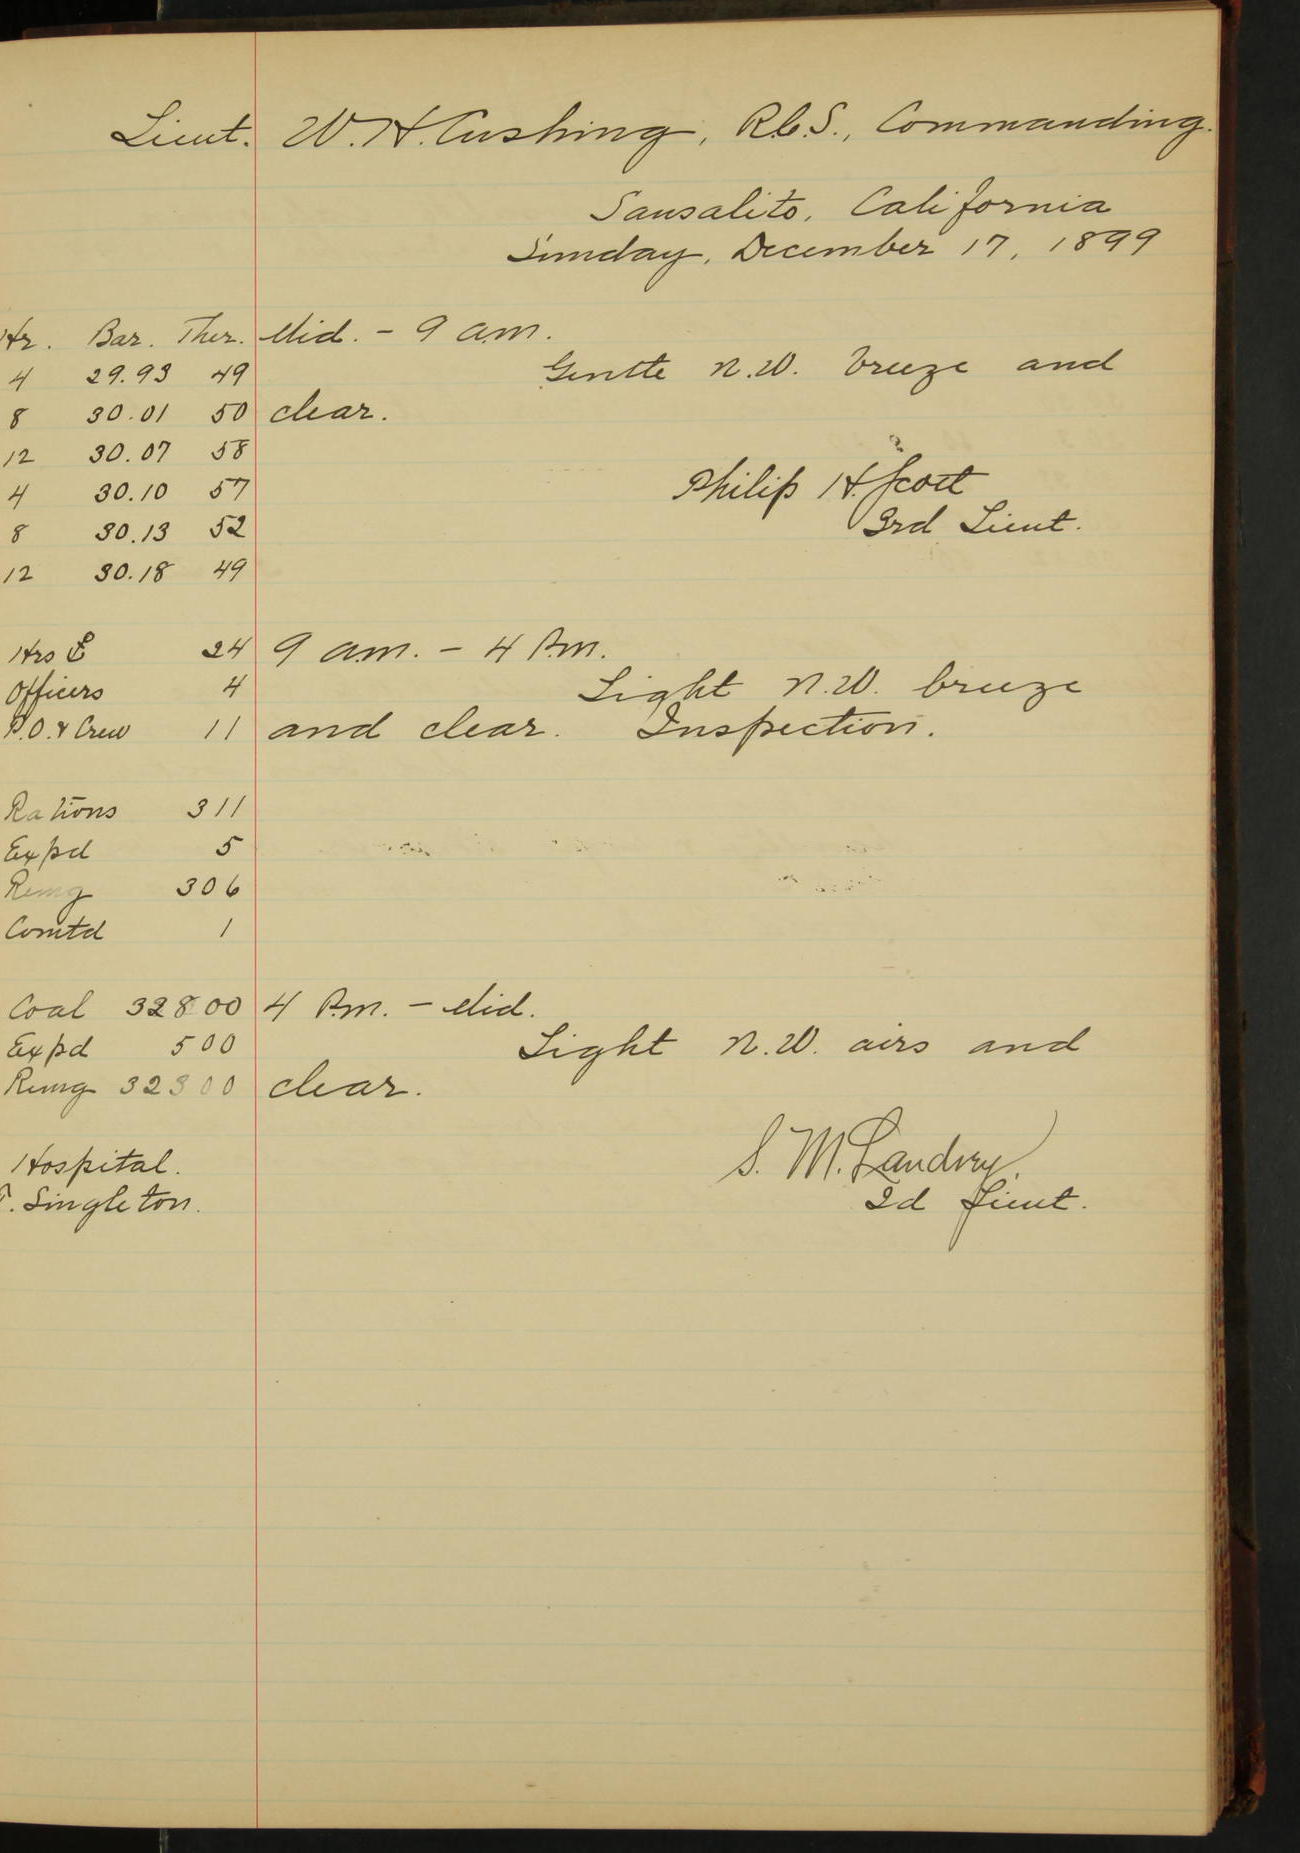 Lieut. W. H. Cushing, R.C.S., Commanding.
Sausalito, California
Sunday, December 17, 1899
Hr. Bar. Ther. Mid. - 9 a.m.
4 29.93 49 Gentle N.W. breeze and
8 30.01 50 clear.
12 30.07 58
4 30.10 57 Philip H. Scott
8 30.13 52 3rd Lieut.
12 30.18 49
Hrs 24 9 a.m. - 4 P.m.
Officers 4 Light N.W. breeze
P.O. & Crew 11 and clear. Inspection.
Rations 311
Expd 5
Remg 306
Comtd 1
Coal 32800 4 P.m. - Mid.
Expd 500 Light N.W. airs and
Remg 32300 clear.
Hospital. S. M. Landrey.
Singleton. 2d Lieut.